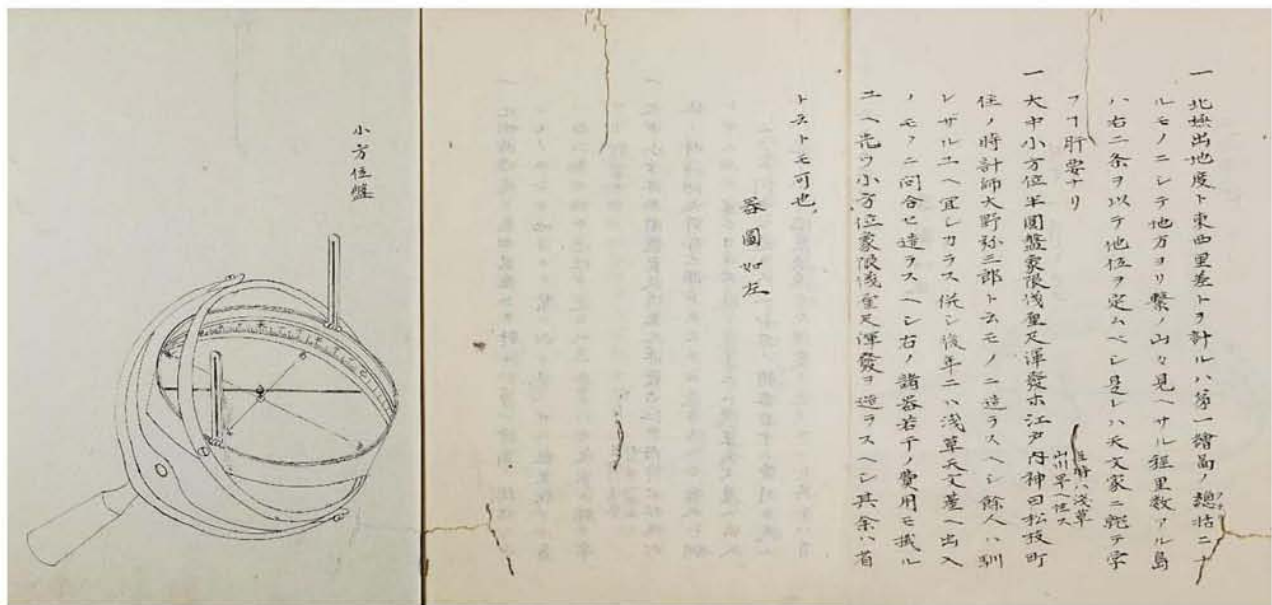 一 北極出地度ト東西里差トヲ計ルハ第一繪圖ノ總括ニナ
ルモノニシテ地方ヨリ繋ノ山々見ヘサル程里数アル島
ハ右二条ヲ以テ地位ヲ定ムベシ是レハ天文家ニ就テ学
フヿ肝要ナリ
一 大中小方位半圓盤象限儀量尺渾發ホ江戸内神田松枝町
住ノ時計師大野弥三郎ト云モノニ造ラスヘシ餘人ハ馴
レザルユヘ宜シカラス併シ後年ニハ浅草天文臺ヘ出入
ノモノニ問合セ造ラスヘシ右ノ諸器若干ノ費用モ掛ル
ユヘ先ツ小方位象限儀量尺渾發ヲ造ラスヘシ其余ハ省
トストモ可也
器圖如左
小方位盤